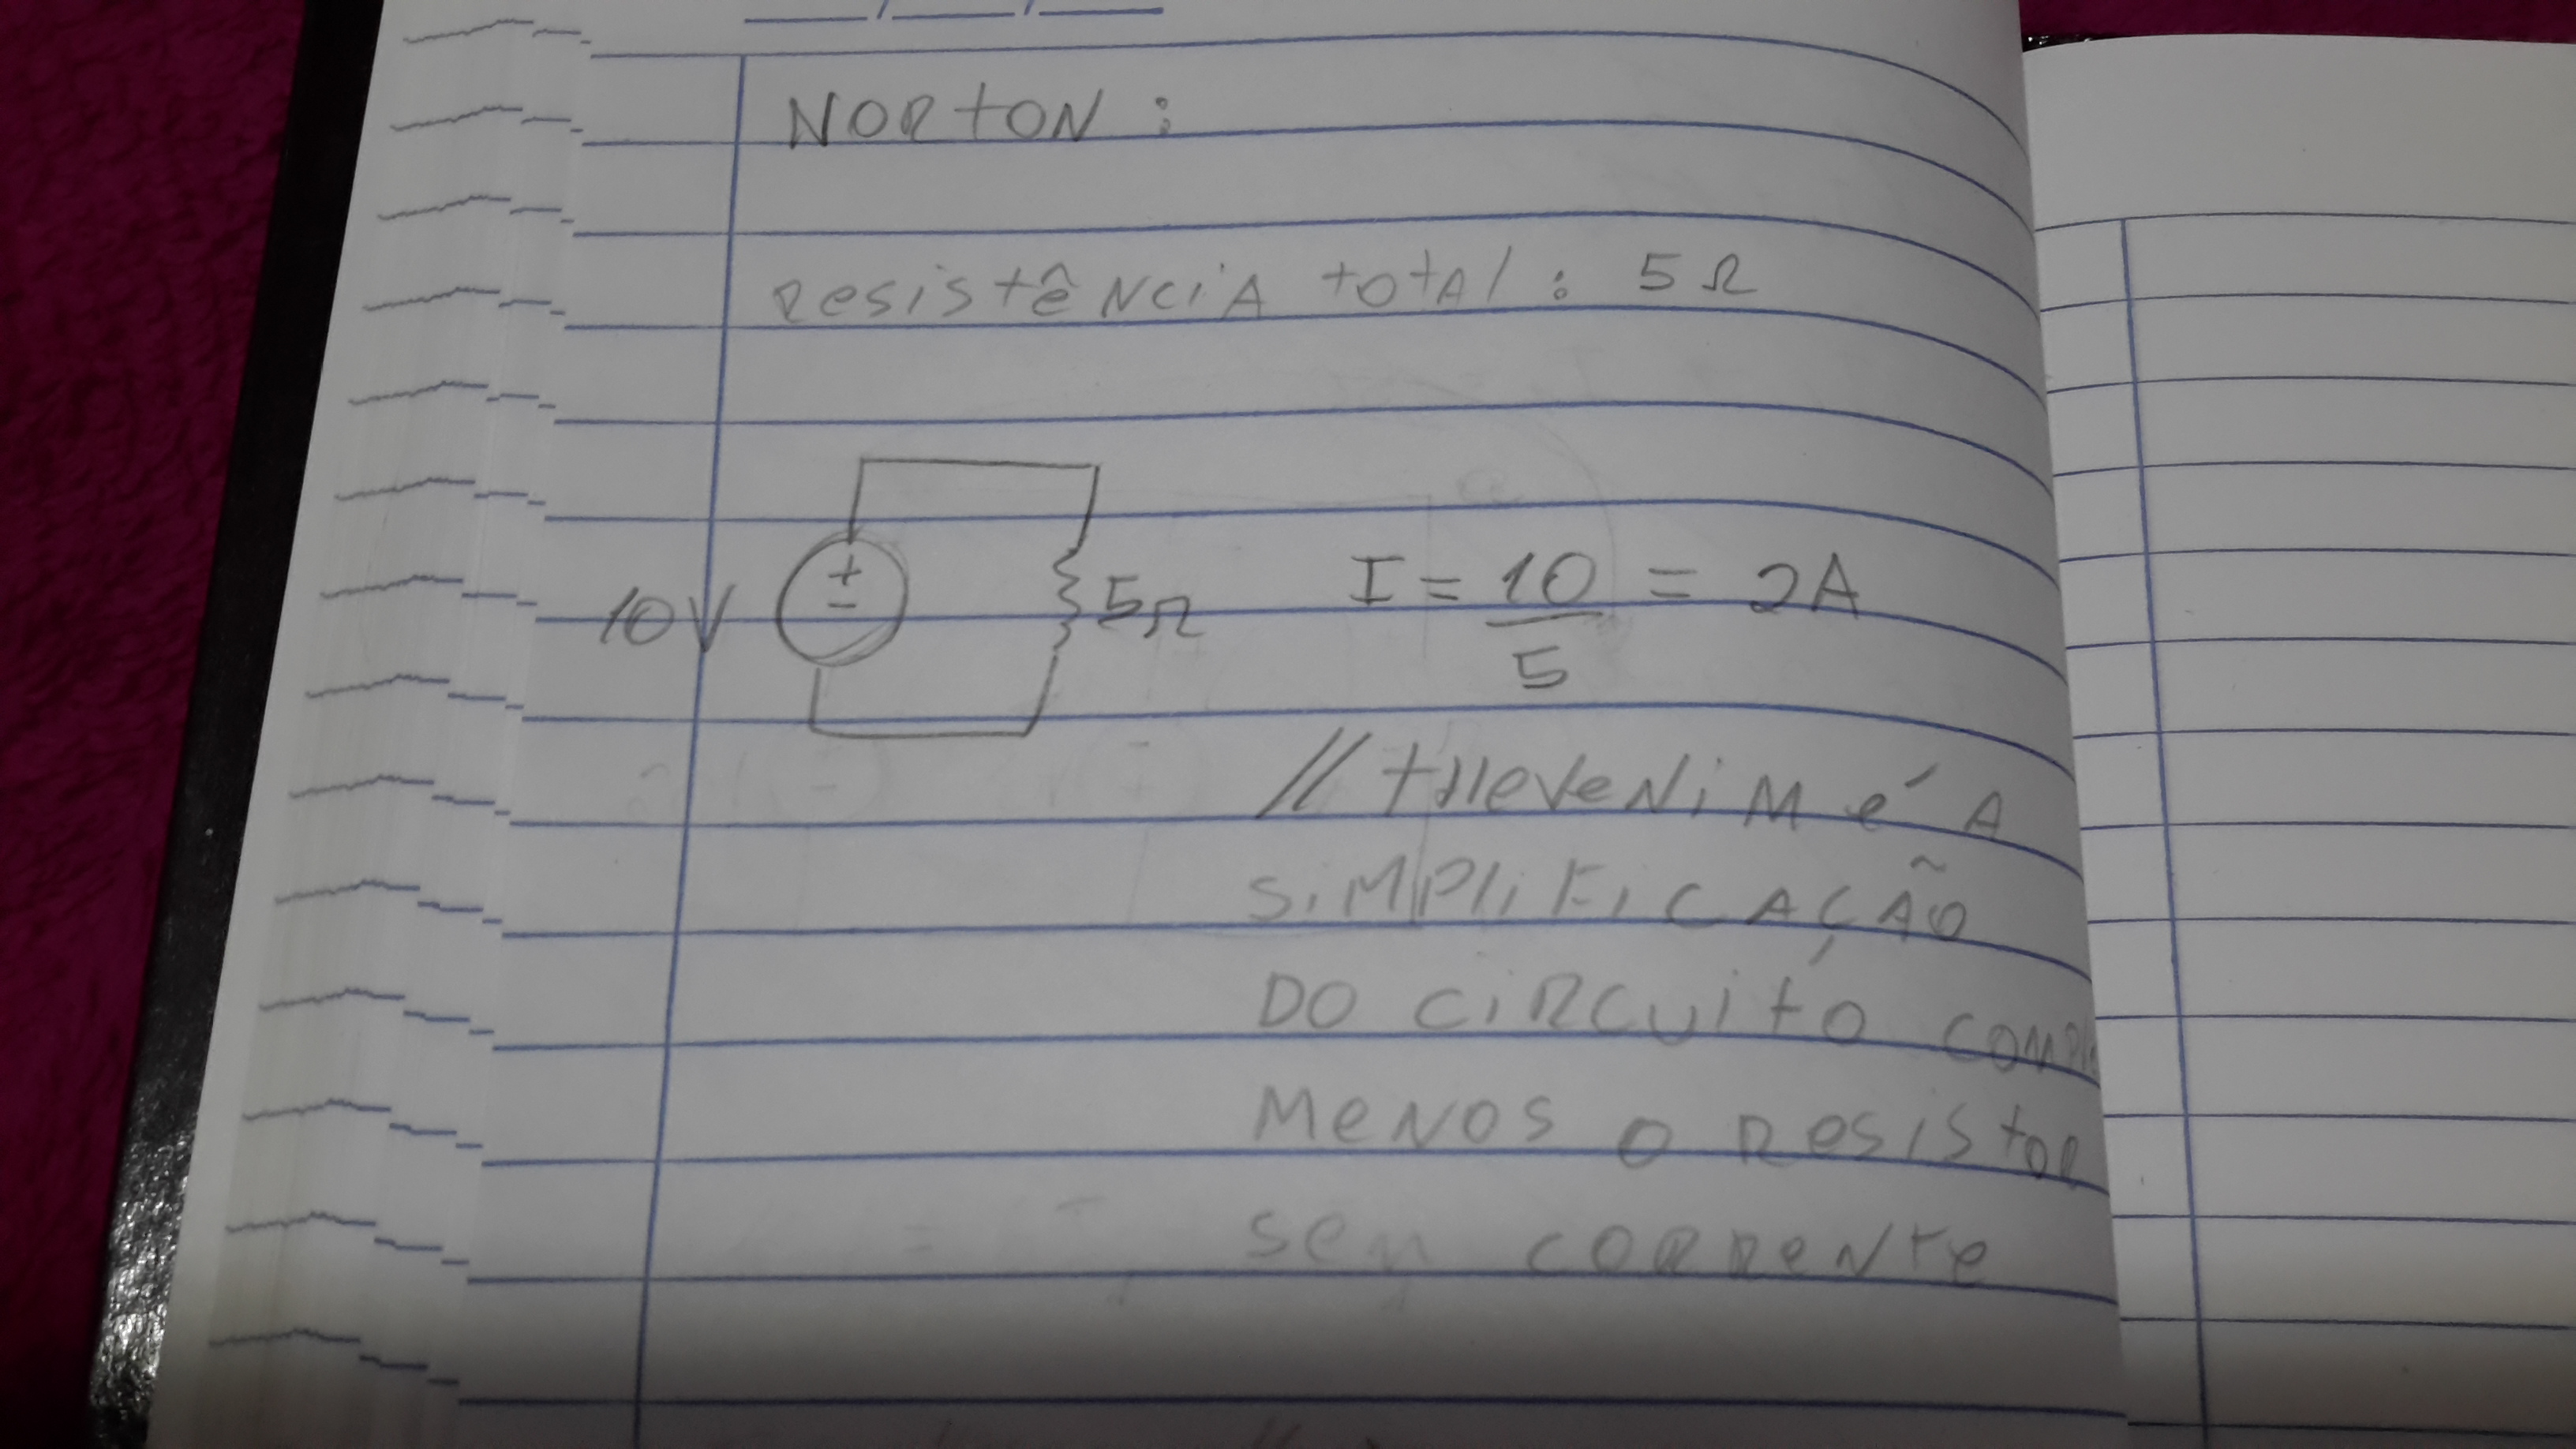 NORTON :
Resistência total : 5 Ω
10 V
+
-
5Ω
I = 10 = 2A
5
// thevenim é a
simplificação
do circuito
menos o resistor
sem corrente